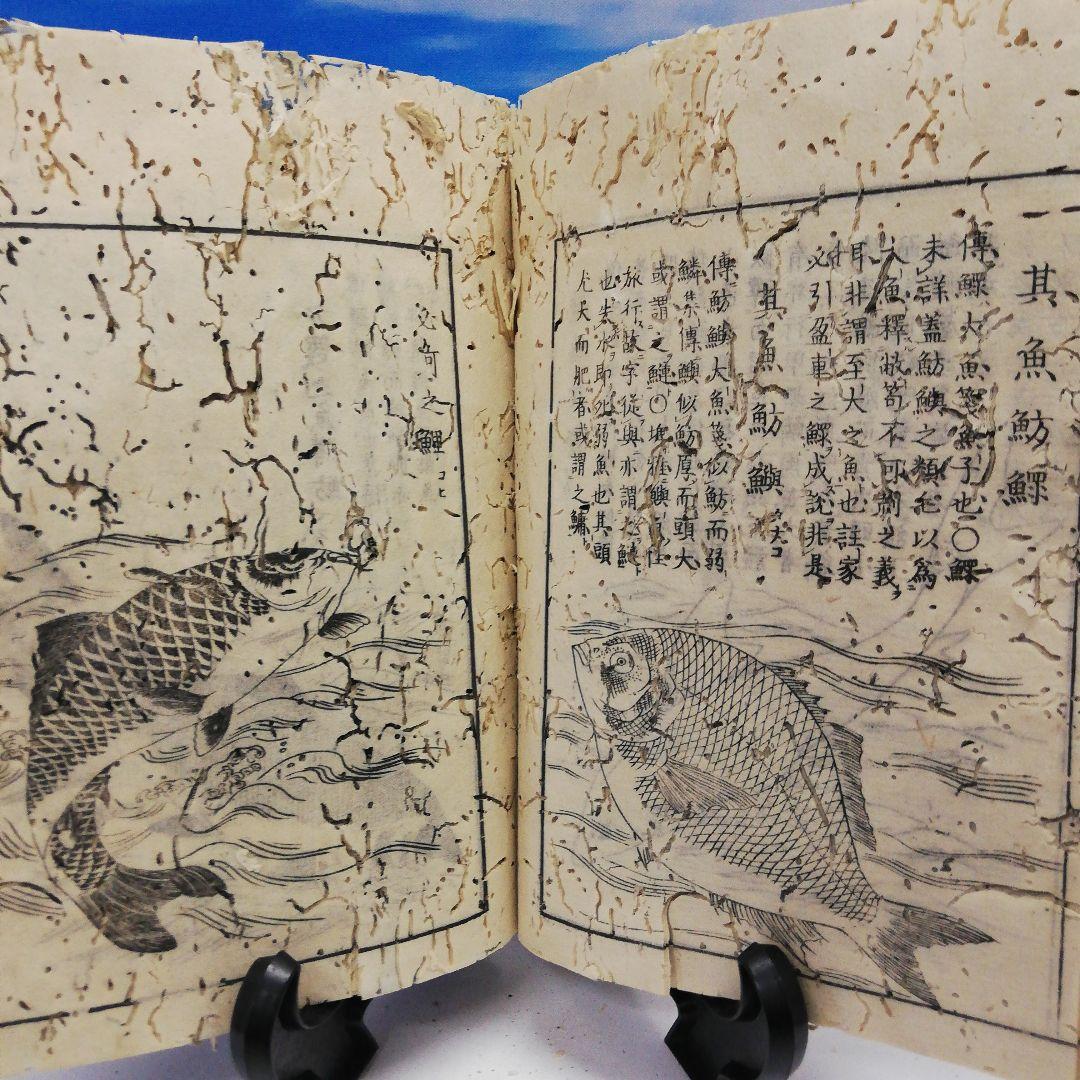 一其魚魴鰥
傳鰥大魚箋魚子也〇鰥
未詳蓋魴鱮之類起以為
大魚釋敝笱不可制之義
耳非謂至大之魚也註家
必引盈車之鰥成說非是
其魚魴鱮
傳魴鱮大魚箋似魴而弱
鱗集傳鱮似魴厚而頭大
或謂之鰱〇埤雅鱮
旅行故字從與亦謂之鰱
也失水即死弱魚也其頭
尤大而肥者或謂之鱅
必河之鯉